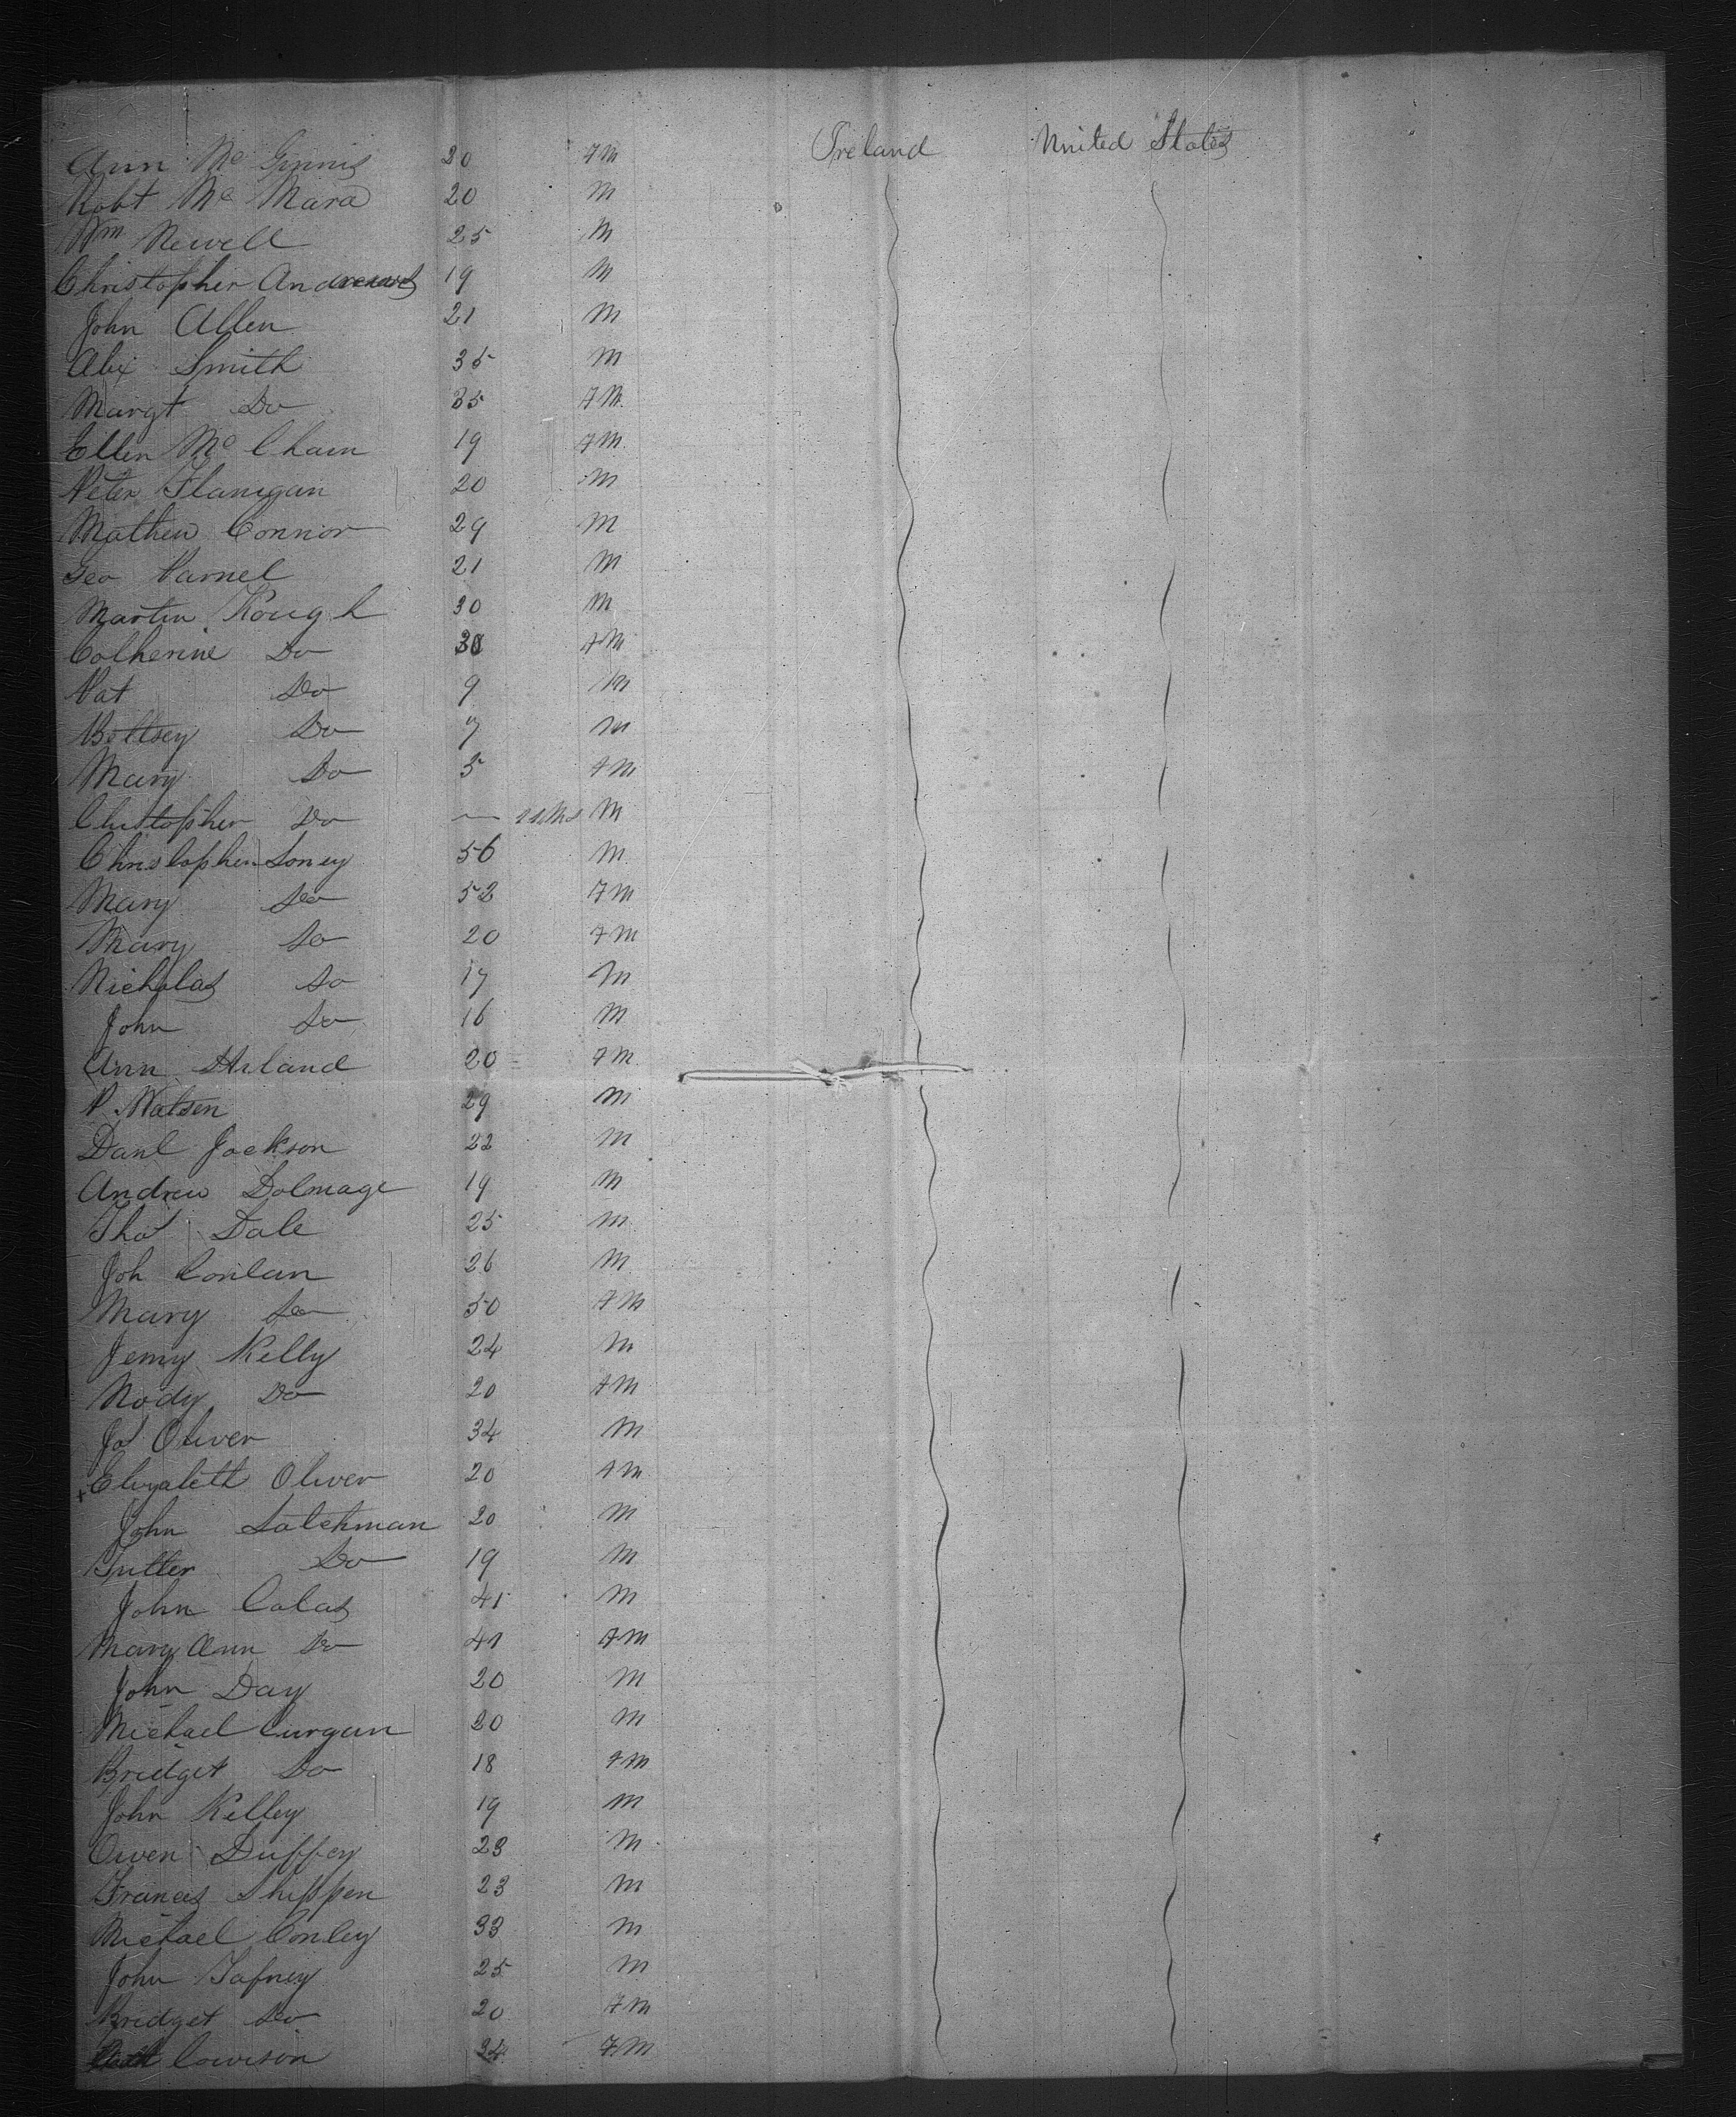 Ann Mc Ginnis 30 Fm Ireland United States
Robt Mc Mara 20 M
Wm Newell 25 M
Christopher Andrews 19 M
John Allen 21 M
Alex Smith 35 M
Margt Do 35 Fm
Ellen Mc Cham 19 Fm
Peter Flanigan 20 M
Mathew Connor 29 M
Geo Parnel 21 M
Martin Kough 30 M
Catherine Do 30 Fm
Pat Do 9 M
Boltsey Do 7 M
Mary Do 5 Fm
Christopher Do — 11 Ms M
Christopher Soney 56 M
Mary Do 52 Fm
Mary Do 20 Fm
Nicholas Do 17 M
John Do 16 M
Ann Hiland 20 Fm
P. Watson 29 M
Danl Jackson 22 M
Andrew Dolmage 19 M
Thos Dale 25 M
Joh Conlan 26 M
Mary Do 50 Fm
Jemy Kelly 24 M
Nody Do 20 Fm
Jos Oliver 34 M
Elizabeth Oliver 20 Fm
John Satchman 20 M
Do 19 M
John Calas 41 M
Mary Ann Do 41 Fm
John Day 20 M
Michael Curgan 20 M
Bridget Do 18 Fm
John Kelley 19 M
Owen Duffey 23 M
Francis Shippen 23 M
Michael Conley 33 M
John Gafney 25 M
Bridget Do 20 Fm
Cowison 24 Fm